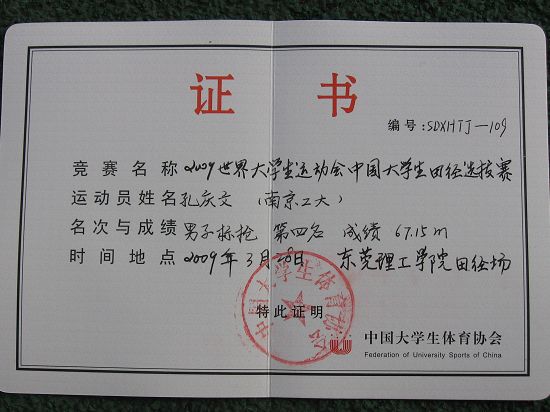 证 书
编号:SDXHTJ—109
竞赛名称 2009世界大学生运动会中国大学生田径选拔赛
运动员姓名 孔庆文 (南京工大)
名次与成绩 男子标枪 第四名 成绩 67.15m
时间地点 2009年3月28日 东莞理工学院田径场
中国大学生体育协会
特此证明
中国大学生体育协会
Federation of University Sports of China